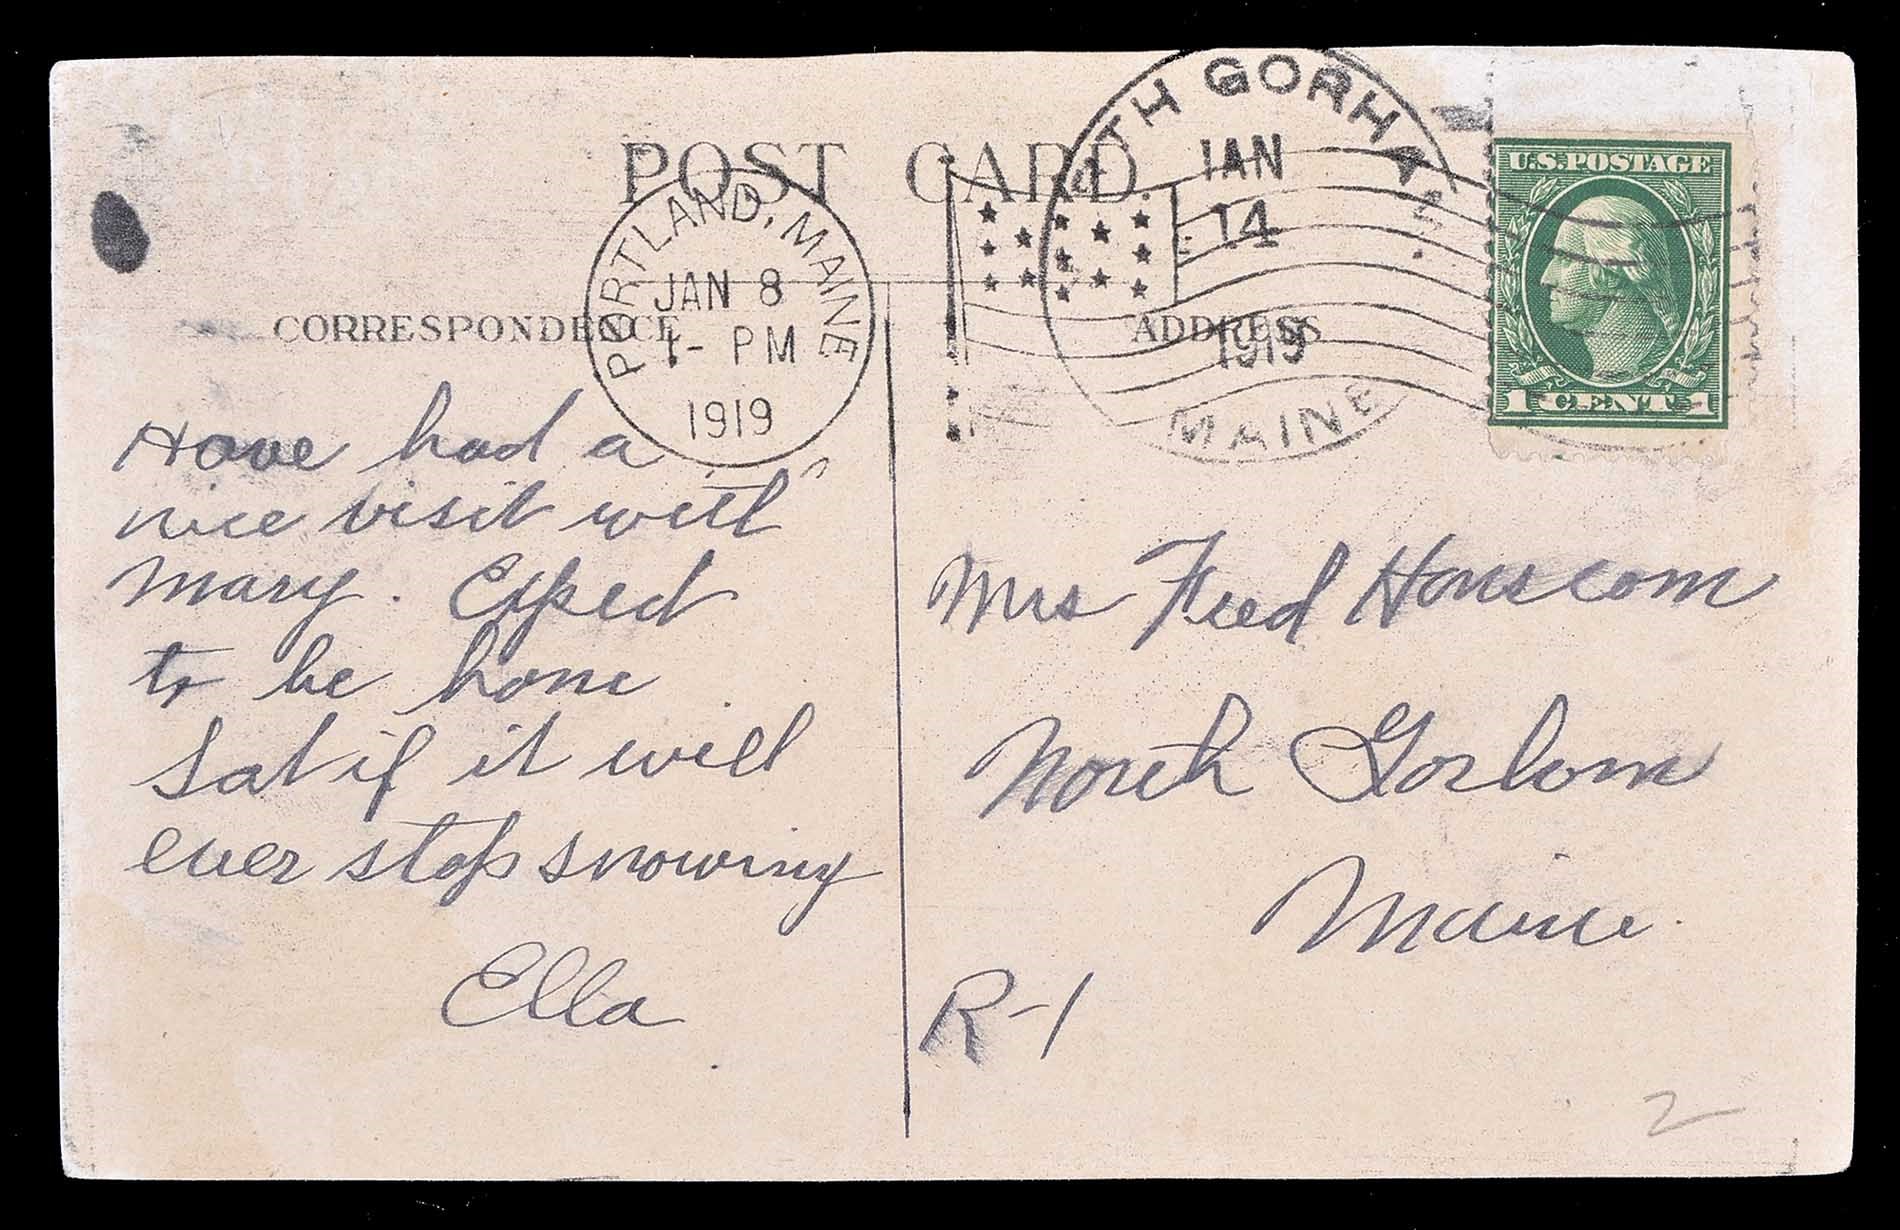 POST CARD
CORRESPONDENCE
ADDRESS
PORTLAND, MAINE
JAN 8
1- PM
1919
TH GORHAM
JAN
14
1919
MAINE
U.S. POSTAGE
1 CENT 1
Have had a
nice visit with
Mary. Expect
to be home
Sat if it will
ever stop snowing
Ella
Mrs Fred Hanscom
North Gorham
Maine.
R-1
2